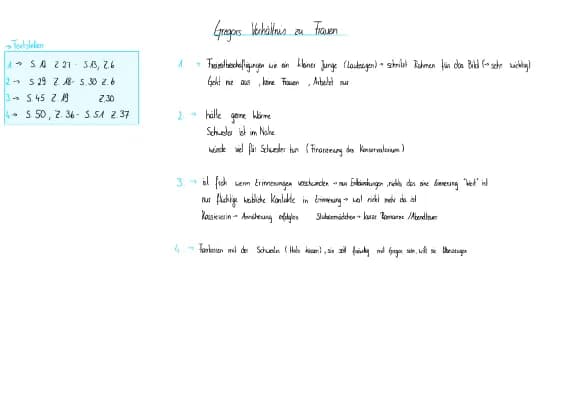 Gregors Verhältnis zu Frauen
→ Textstellen
1 → S. 12 Z 21 - S. 13, Z. 6
2 → S. 29 Z. 18 - S. 30 Z. 6
3 → S. 45 Z. 19 Z. 30
4 → S. 50, Z. 36 - S. 51 Z. 37
1 → Freizeitbeschäftigungen wie ein kleiner Junge (Laubsägen) → schnitzt Rahmen für das Bild (→ sehr wichtig)
Geht nie aus, keine Frauen, Arbeitet nur
2 → hätte gerne Wärme
Schwester ist im Nahe
würde viel für Schwester tun (Finanzierung des Konservatorium)
3 → ist froh wenn Erinnerungen verschwinden → nur Enttäuschungen, nichts das eine Erinnerung "Wert" ist
nur flüchtige weibliche Kontakte in Erinnerung → weil nicht mehr da ist
Kassiererin → Annäherung erfolglos Stubenmädchen → kurze Romanze / Abenteuer
4 → Fantasien mit der Schwester (Hals küssen), sie soll freiwillig mit Gregor sein, will sie überzeugen